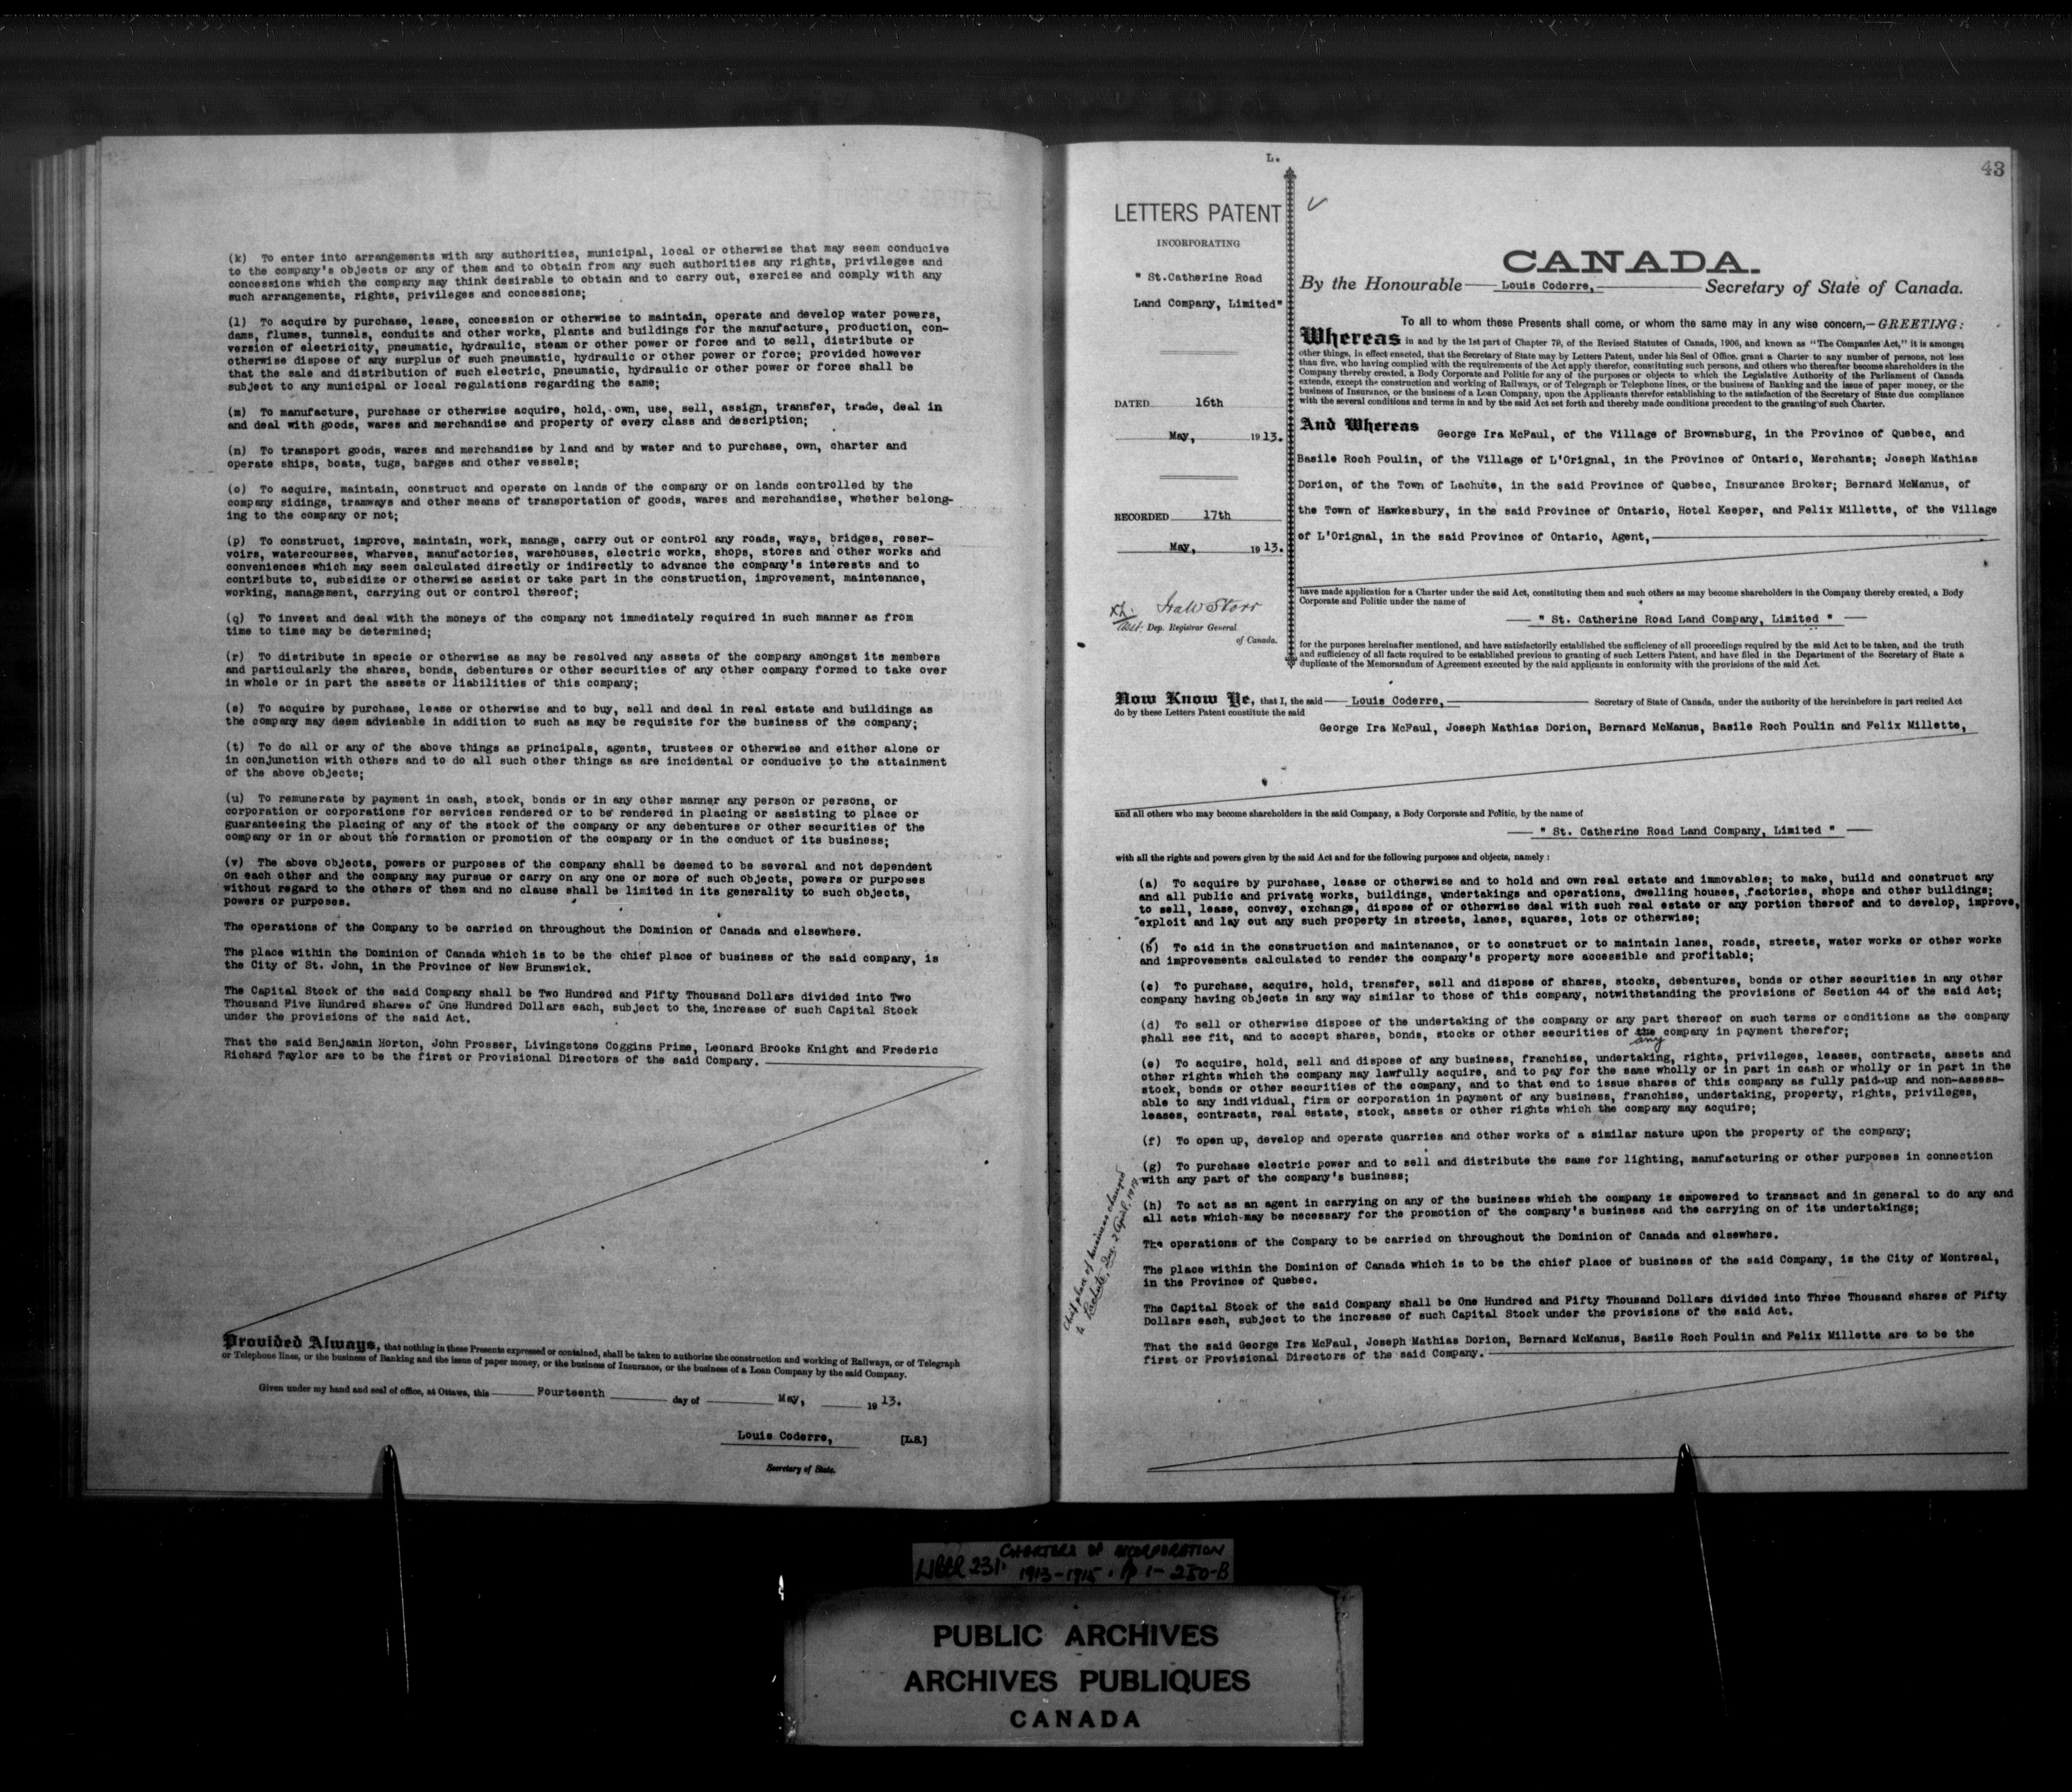 (k) To enter into arrangements with any authorities, municipal, local or otherwise that may seem conducive
to the company's objects or any of them and to obtain from any such authorities any rights, privileges and
concessions which the company may think desirable to obtain and to carry out, exercise and comply with any
such arrangements, rights, privileges and concessions;
(l) To acquire by purchase, lease, concession or otherwise to maintain, operate and develop water powers,
dams, flumes, tunnels, conduits and other works, plants and buildings for the manufacture, production, con-
version of electricity, pneumatic, hydraulic, steam or other power or force and to sell, distribute or
otherwise dispose of any surplus of such pneumatic, hydraulic or other power or force; provided however
that the sale and distribution of such electric, pneumatic, hydraulic or other power or force shall be
subject to any municipal or local regulations regarding the same;
(m) To manufacture, purchase or otherwise acquire, hold, own, use, sell, assign, transfer, trade, deal in
and deal with goods, wares and merchandise and property of every class and description;
(n) To transport goods, wares and merchandise by land and by water and to purchase, own, charter and
operate ships, boats, tugs, barges and other vessels;
(o) To acquire, maintain, construct and operate on lands of the company or on lands controlled by the
company sidings, tramways and other means of transportation of goods, wares and merchandise, whether belong-
ing to the company or not;
(p) To construct, improve, maintain, work, manage, carry out or control any roads, ways, bridges, reser-
voirs, watercourses, wharves, manufactories, warehouses, electric works, shops, stores and other works and
conveniences which may seem calculated directly or indirectly to advance the company's interests and to
contribute to, subsidize or otherwise assist or take part in the construction, improvement, maintenance,
working, management, carrying out or control thereof;
(q) To invest and deal with the moneys of the company not immediately required in such manner as from
time to time may be determined;
(r) To distribute in specie or otherwise as may be resolved any assets of the company amongst its members
and particularly the shares, bonds, debentures or other securities of any other company formed to take over
in whole or in part the assets or liabilities of this company;
(s) To acquire by purchase, lease or otherwise and to buy, sell and deal in real estate and buildings as
the company may deem advisable in addition to such as may be requisite for the business of the company;
(t) To do all or any of the above things as principals, agents, trustees or otherwise and either alone or
in conjunction with others and to do all such other things as are incidental or conducive to the attainment
of the above objects;
(u) To remunerate by payment in cash, stock, bonds or in any other manner any person or persons, or
corporation or corporations for services rendered or to be rendered in placing or assisting to place or
guaranteeing the placing of any of the stock of the company or any debentures or other securities of the
company or in or about the formation or promotion of the company or in the conduct of its business;
(v) The above objects, powers or purposes of the company shall be deemed to be several and not dependent
on each other and the company may pursue or carry on any one or more of such objects, powers or purposes
without regard to the others of them and no clause shall be limited in its generality to such objects,
powers or purposes.
The operations of the Company to be carried on throughout the Dominion of Canada and elsewhere.
The place within the Dominion of Canada which is to be the chief place of business of the said company, is
the City of St. John, in the Province of New Brunswick.
The Capital Stock of the said Company shall be Two Hundred and Fifty Thousand Dollars divided into Two
Thousand Five Hundred shares of One Hundred Dollars each, subject to the increase of such Capital Stock
under the provisions of the said Act.
That the said Benjamin Horton, John Prosser, Livingstone Coggins Prime, Leonard Brooks Knight and Frederic
Richard Taylor are to be the first or Provisional Directors of the said Company.
Provided Always, that nothing in these Presents expressed or contained, shall be taken to authorize the construction and working of Railways, or of Telegraph
or Telephone lines, or the business of Banking and the issue of paper money, or the business of Insurance, or the business of a Loan Company by the said Company.
Given under my hand and seal of office, at Ottawa, this Fourteenth day of May, 19 13.
Louis Coderre, [L.S.]
Secretary of State.
L.
43
LETTERS PATENT
INCORPORATING
" St.Catherine Road
Land Company, Limited"
DATED 16th
May, 19 13.
RECORDED 17th
May, 19 13.
Ira W Storr
Asst. Dep. Registrar General
of Canada.
CANADA.
By the Honourable Louis Coderre, Secretary of State of Canada.
To all to whom these Presents shall come, or whom the same may in any wise concern,—GREETING:
Whereas in and by the 1st part of Chapter 79, of the Revised Statutes of Canada, 1906, and known as "The Companies Act," it is amongst
other things, in effect enacted, that the Secretary of State may by Letters Patent, under his Seal of Office, grant a Charter to any number of persons, not less
than five, who having complied with the requirements of the Act apply therefor, constituting such persons, and others who thereafter become shareholders in the
Company thereby created, a Body Corporate and Politic for any of the purposes or objects to which the Legislative Authority of the Parliament of Canada
extends, except the construction and working of Railways, or of Telegraph or Telephone lines, or the business of Banking and the issue of paper money, or the
business of Insurance, or the business of a Loan Company, upon the Applicants therefor establishing to the satisfaction of the Secretary of State due compliance
with the several conditions and terms in and by the said Act set forth and thereby made conditions precedent to the granting of such Charter.
And Whereas George Ira McFaul, of the Village of Brownsburg, in the Province of Quebec, and
Basile Roch Poulin, of the Village of L'Orignal, in the Province of Ontario, Merchants; Joseph Mathias
Dorion, of the Town of Lachute, in the said Province of Quebec, Insurance Broker; Bernard McManus, of
the Town of Hawkesbury, in the said Province of Ontario, Hotel Keeper, and Felix Millette, of the Village
of L'Orignal, in the said Province of Ontario, Agent,
have made application for a Charter under the said Act, constituting them and such others as may become shareholders in the Company thereby created, a Body
Corporate and Politic under the name of
" St. Catherine Road Land Company, Limited "
for the purposes hereinafter mentioned, and have satisfactorily established the sufficiency of all proceedings required by the said Act to be taken, and the truth
and sufficiency of all facts required to be established previous to granting of such Letters Patent, and have filed in the Department of the Secretary of State a
duplicate of the Memorandum of Agreement executed by the said applicants in conformity with the provisions of the said Act.
Now Know Ye, that I, the said Louis Coderre, Secretary of State of Canada, under the authority of the hereinbefore in part recited Act
do by these Letters Patent constitute the said
George Ira McFaul, Joseph Mathias Dorion, Bernard McManus, Basile Roch Poulin and Felix Millette,
and all others who may become shareholders in the said Company, a Body Corporate and Politic, by the name of
" St. Catherine Road Land Company, Limited "
with all the rights and powers given by the said Act and for the following purposes and objects, namely :
(a) To acquire by purchase, lease or otherwise and to hold and own real estate and immovables; to make, build and construct any
and all public and private works, buildings, undertakings and operations, dwelling houses, factories, shops and other buildings;
to sell, lease, convey, exchange, dispose of or otherwise deal with such real estate or any portion thereof and to develop, improve,
exploit and lay out any such property in streets, lanes, squares, lots or otherwise;
(b) To aid in the construction and maintenance, or to construct or to maintain lanes, roads, streets, water works or other works
and improvements calculated to render the company's property more accessible and profitable;
(c) To purchase, acquire, hold, transfer, sell and dispose of shares, stocks, debentures, bonds or other securities in any other
company having objects in any way similar to those of this company, notwithstanding the provisions of Section 44 of the said Act;
(d) To sell or otherwise dispose of the undertaking of the company or any part thereof on such terms or conditions as the company
shall see fit, and to accept shares, bonds, stocks or other securities of the company in payment therefor;
any
(e) To acquire, hold, sell and dispose of any business, franchise, undertaking, rights, privileges, leases, contracts, assets and
other rights which the company may lawfully acquire, and to pay for the same wholly or in part in cash or wholly or in part in the
stock, bonds or other securities of the company, and to that end to issue shares of this company as fully paid-up and non-assess-
able to any individual, firm or corporation in payment of any business, franchise, undertaking, property, rights, privileges,
leases, contracts, real estate, stock, assets or other rights which the company may acquire;
(f) To open up, develop and operate quarries and other works of a similar nature upon the property of the company;
(g) To purchase electric power and to sell and distribute the same for lighting, manufacturing or other purposes in connection
with any part of the company's business;
(h) To act as an agent in carrying on any of the business which the company is empowered to transact and in general to do any and
all acts which may be necessary for the promotion of the company's business and the carrying on of its undertakings;
The operations of the Company to be carried on throughout the Dominion of Canada and elsewhere.
The place within the Dominion of Canada which is to be the chief place of business of the said Company, is the City of Montreal,
in the Province of Quebec.
The Capital Stock of the said Company shall be One Hundred and Fifty Thousand Dollars divided into Three Thousand shares of Fifty
Dollars each, subject to the increase of such Capital Stock under the provisions of the said Act.
That the said George Ira McFaul, Joseph Mathias Dorion, Bernard McManus, Basile Roch Poulin and Felix Millette are to be the
first or Provisional Directors of the said Company.
Chief place of business changed
to Lachute, Que. 2 April,
LIBER 231. CHARTERS OF INCORPORATION
1913-1915. p 1-250-B
PUBLIC ARCHIVES
ARCHIVES PUBLIQUES
CANADA